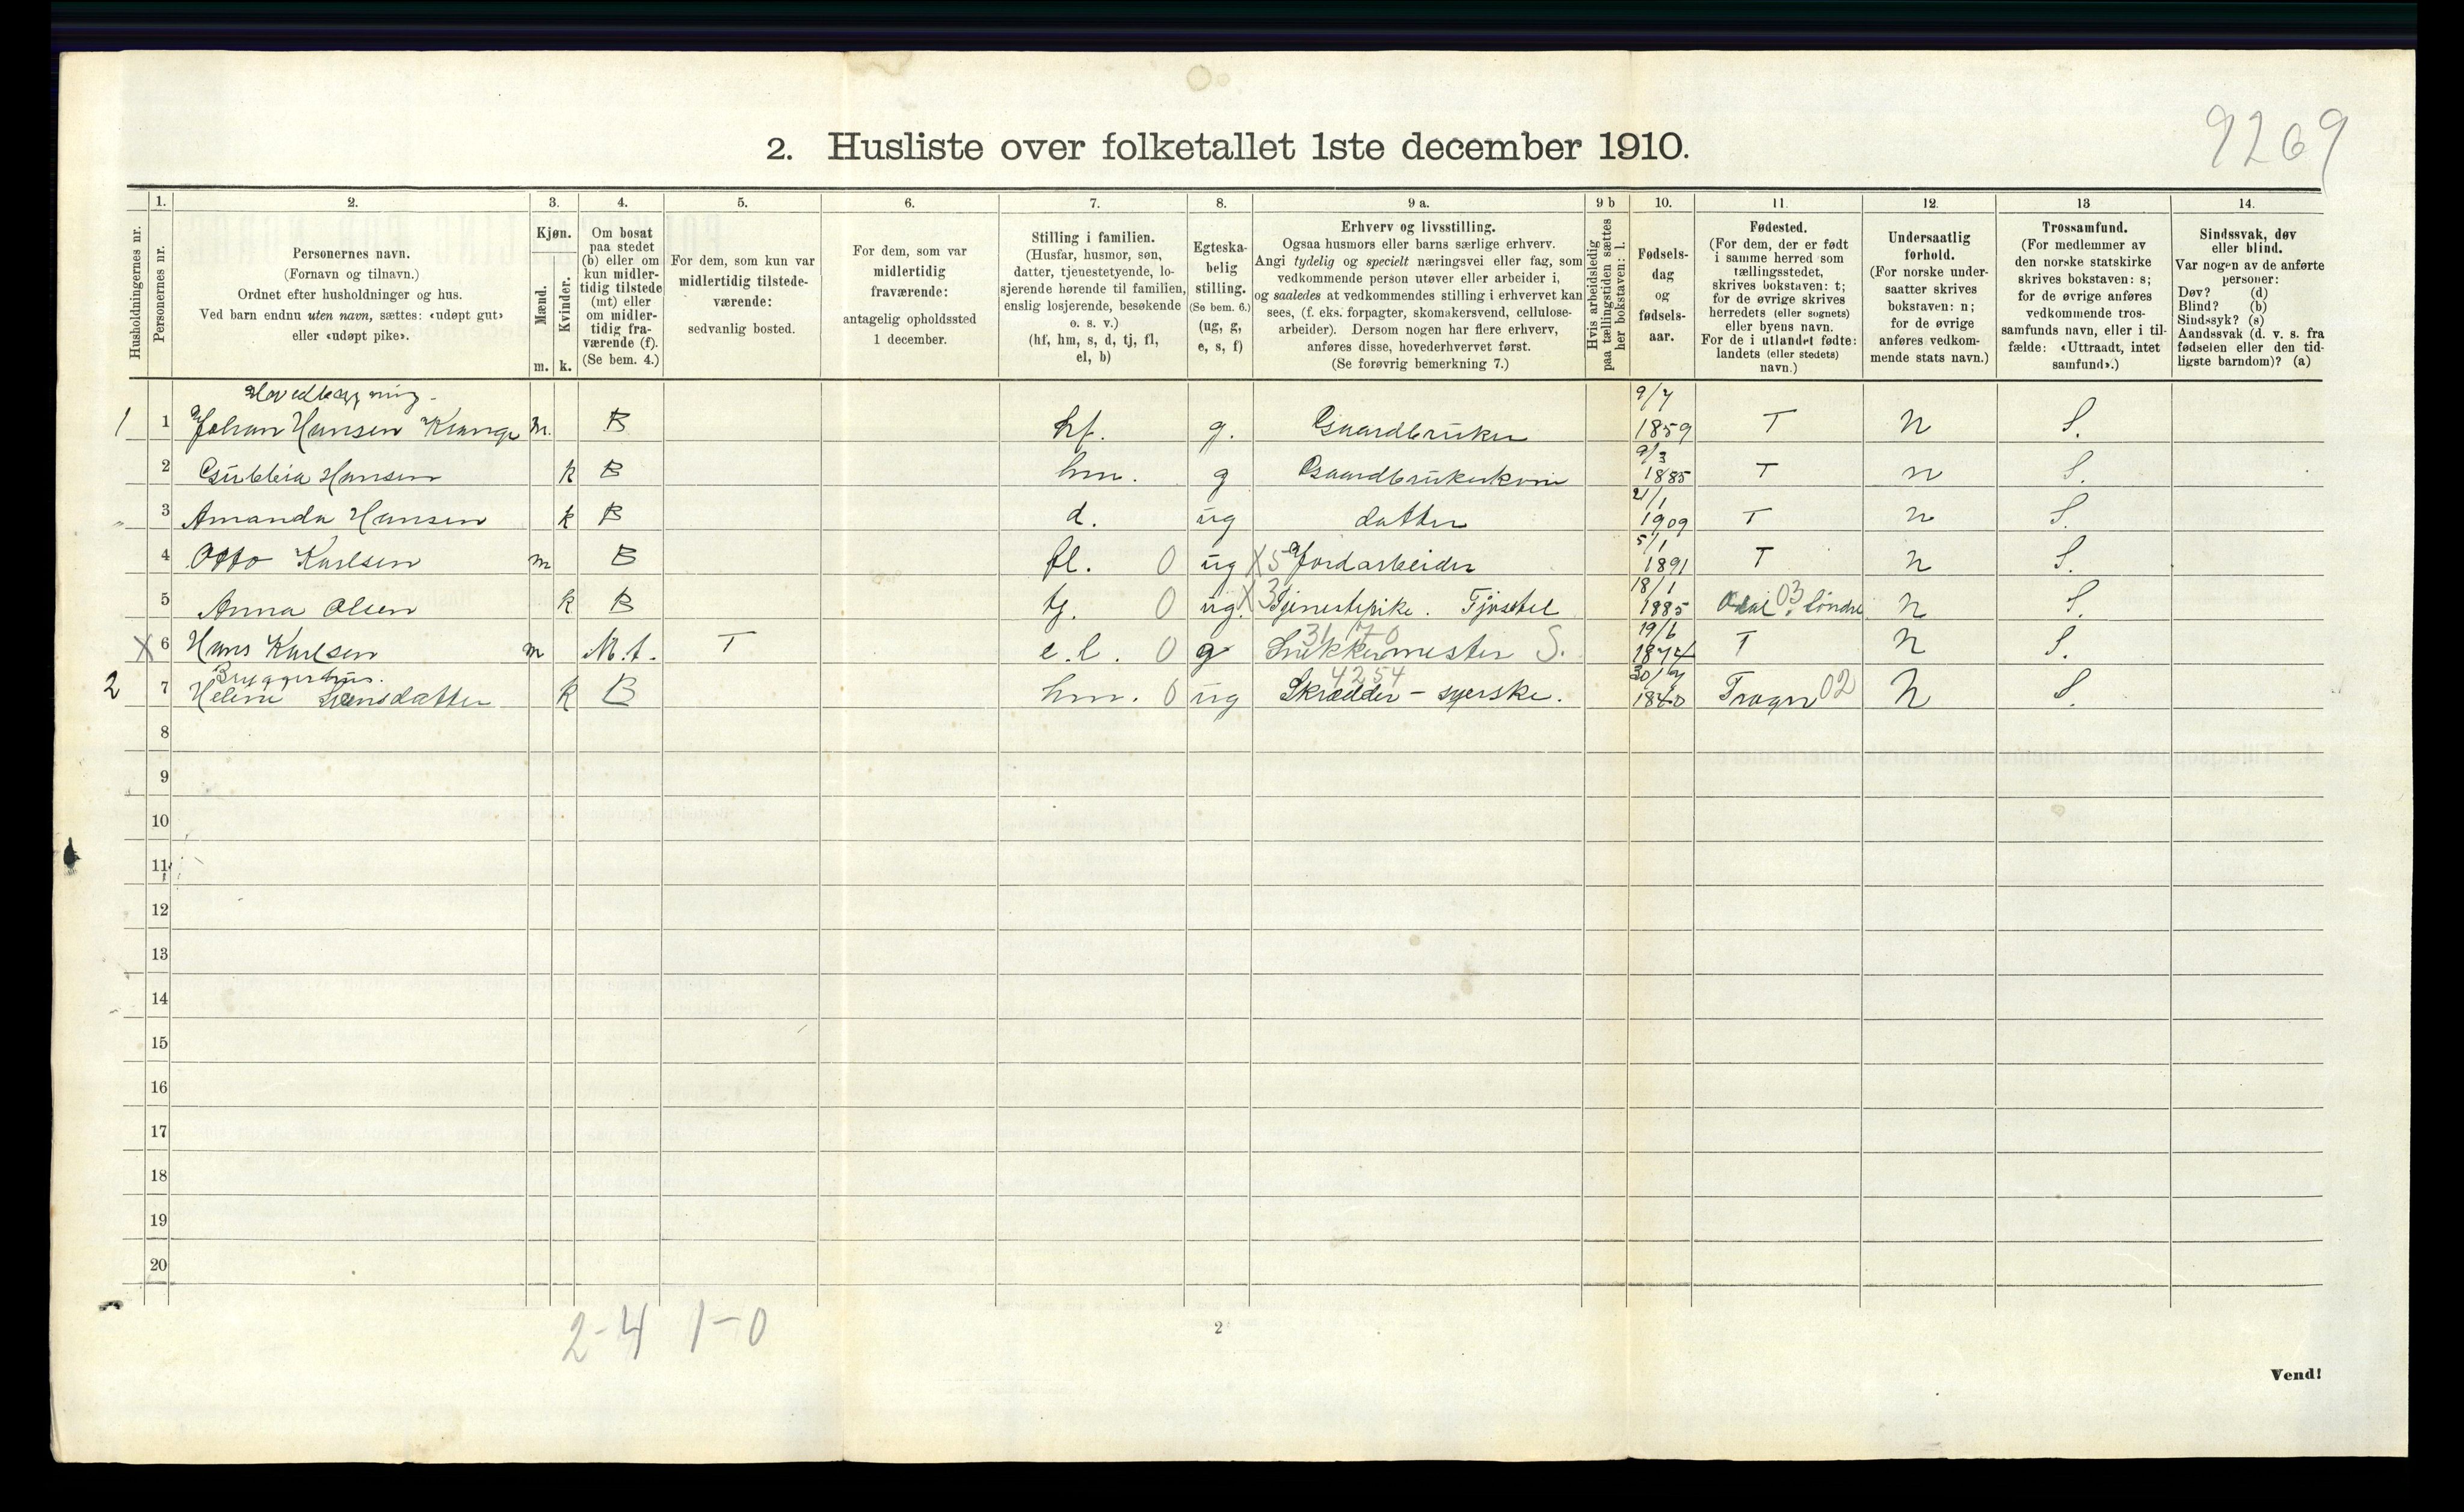 9269
2. Husliste over folketallet 1ste december 1910.
Husholdningernes nr.
1. Personernes nr.
2. Personernes navn. (Fornavn og tilnavn.) Ordnet efter husholdninger og hus. Ved barn endnu uten navn, sættes: «udøpt gut» eller «udøpt pike».
3. Kjøn. Mænd. m. Kvinder. k.
4. Om bosat paa stedet (b) eller om kun midlertidig tilstede (mt) eller om midlertidig fraværende (f). (Se bem. 4.)
5. For dem, som kun var midlertidig tilstedeværende: sedvanlig bosted.
6. For dem, som var midlertidig fraværende: antagelig opholdssted 1 december.
7. Stilling i familien. (Husfar, husmor, søn, datter, tjenestetyende, losjerende hørende til familien, enslig losjerende, besøkende o. s. v.) (hf, hm, s, d, tj, fl, el, b)
8. Egteskabelig stilling. (Se bem. 6.) (ug, g, e, s, f)
9 a. Erhverv og livsstilling. Ogsaa husmors eller barns særlige erhverv. Angi tydelig og specielt næringsvei eller fag, som vedkommende person utøver eller arbeider i, og saaledes at vedkommendes stilling i erhvervet kan sees, (f. eks. forpagter, skomakersvend, cellulosearbeider). Dersom nogen har flere erhverv, anføres disse, hovederhvervet først. (Se forøvrig bemerkning 7.)
9 b Hvis arbeidsledig paa tællingstiden sættes her bokstaven: l.
10. Fødselsdag og fødselsaar.
11. Fødested. (For dem, der er født i samme herred som tællingsstedet, skrives bokstaven: t; for de øvrige skrives herredets (eller sognets) eller byens navn. For de i utlandet fødte: landets (eller stedets) navn.)
12. Undersaatlig forhold. (For norske undersaatter skrives bokstaven: n; for de øvrige anføres vedkommende stats navn.)
13 Trossamfund. (For medlemmer av den norske statskirke skrives bokstaven: s; for de øvrige anføres vedkommende trossamfunds navn, eller i tilfælde: «Uttraadt, intet samfund».)
14. Sindssvak, døv eller blind. Var nogen av de anførte personer: Døv? (d) Blind? (b) Sindssyk? (s) Aandssvak (d. v. s. fra fødselen eller den tidligste barndom)? (a)
Hovedbygning.
1 1 Johan Hansen m. B hf. g. Gaardbruker 9/7 1859 T N S.
2 Hansen k B hm. g Gaardbrukerkone 9/3 1885 T n S.
3 Amanda Hansen k B d. ug datter 21/1 1909 T n S.
4 Otto Karlsen m B fl. 0 ug X5 Jordarbeider 5/1 1891 T n S.
5 Anna Olsen k B tj. 0 ug. X3 Tjenestepike. 18/1 1885 Odal 03 Søndre n S.
X 6 Hans Karlsen m M.t. T e.l. 0 g 3170 Snekkermester S. 19/6 1874 T N S.
Bryggerhus.
2 7 Helene k B hm. 0 ug 4254 Skrædder-syerske. 30/7 1840 Trøgst 02 N S.
8
9
10
11
12
13
14
15
16
17
18
19
20
2-4 1-0
2
Vend!